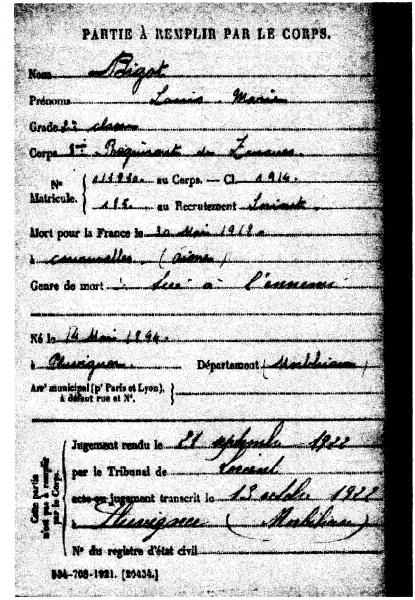 PARTIE À REMPLIR PAR LE CORPS.
Nom Bigot
Prénoms Louis Marie
Grade 2e classe
Corps Régiment de Zouaves
N° Matricule. { au Corps. — Cl. 1914
au Recrutement Lorient
Mort pour la France le 30 Mai 1918
à (Aisne)
Genre de mort Tué à l'ennemi
Né le 14 Mai 1894
à Pluvigner Département (Morbihan)
Arrt municipal (pr Paris et Lyon), à défaut rue et N°. }
Cette partie n'est pas à remplir par le Corps.
Jugement rendu le 28 septembre 1922
par le Tribunal de Lorient
acte ou jugement transcrit le 13 octobre 1922
à Pluvigner (Morbihan)
N° du registre d'état civil
534-708-1921. [26434.]